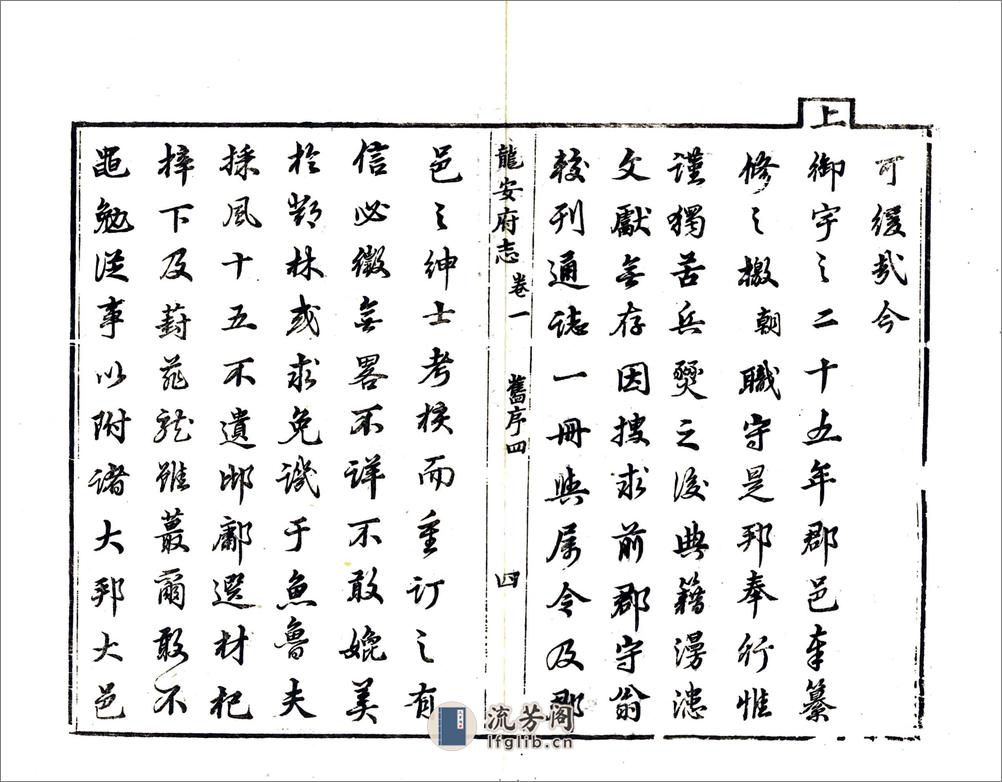 可緩哉今
上
御宇之二十五年郡邑奉纂
修之檄朝職守是邦奉行惟
謹獨苦兵燹之後典籍漫漶
文獻無存因搜求前郡守翁
較刊通誌一冊與屬令及郡
龍安府志 卷一 舊序四 四
邑之紳士考核而重訂之有
信必徵無畧不詳不敢媲美
於鄧林或求免譏于魚魯夫
採風十五不遺邶鄘選材杞
梓下及葑菲龍雖蕞爾敢不
黽勉從事以附諸大邦大邑
流芳阁
lfglib.cn